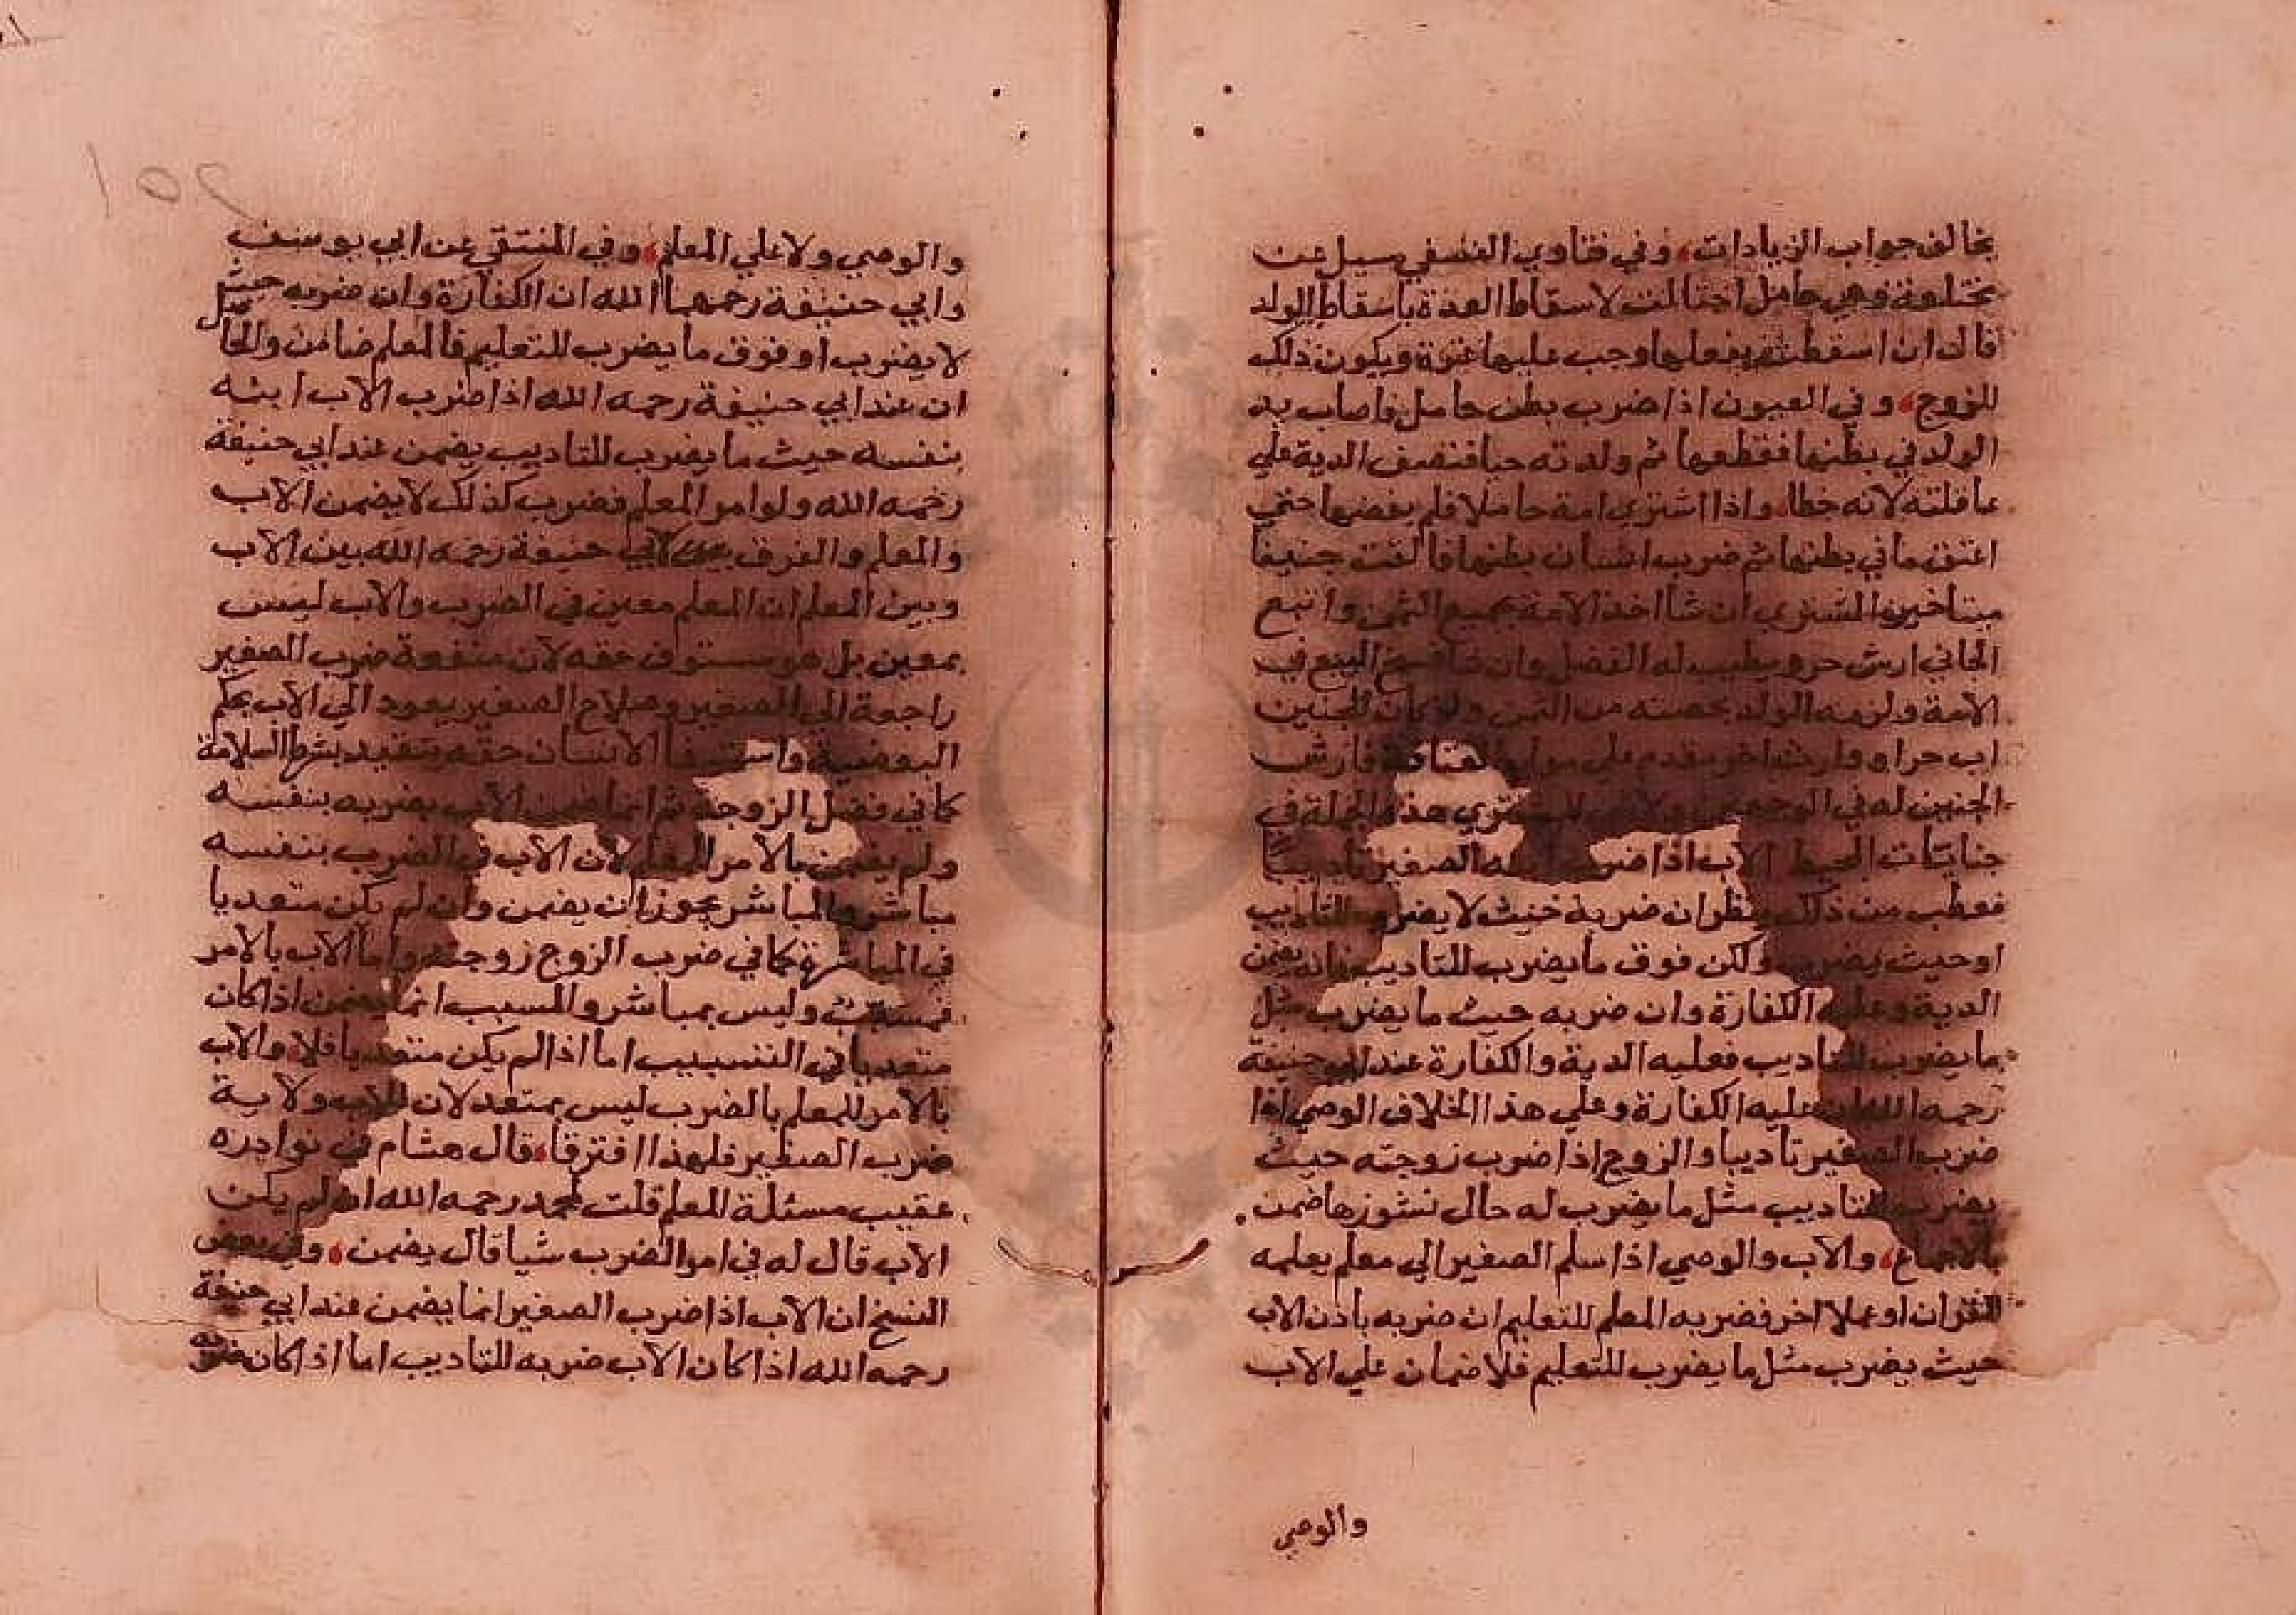 يخالف جواب الزيادات، وفي فتاوي النسفي سيل عن
مختلعة وهي حامل احتالت لاسقاط العدة باسقاط الولد
قال ان اسقطته بفعلها وجب عليها غرة ويكون ذلك
للزوج، وفي العيون اذا ضرب بطن حامل فاصاب يد
الولد في بطنها فقطعها ثم ولدته حيا فنصف الدية علي
عاقلته لانه خطا، واذا اشتري امة حاملا فلم يقبضها حتي
اعتق ما في بطنها ثم ضرب انسان بطنها فالقت جنينا
ميتا خير المشتري ان شا اخذ الامة بجميع الثمن واتبع
الجاني ارش حر ويطيب له الفضل وان شا فسخ البيع في
الامة ولزمه الولد بحصته من الثمن ولو كان للجنين
اب حر او وارث اخر مقدم علي مولي العتاقة فارش
الجنين له في الوجهين ولا للمشتري هذه الجملة في
جنايات المحيط الاب اذا ضرب ابنه الصغير تاديبا
فعطب من ذلك ينظر ان ضربه حيث لا يضرب للتاديب
او حيث يضرب ولكن فوق ما يضرب للتاديب فانه يضمن
الدية وعليه الكفارة وان ضربه حيث ما يضرب مثل
ما يضرب للتاديب فعليه الدية والكفارة عند ابي حنيفة
رحمه الله عليه الكفارة وعلي هذا الخلاف الوصي اذا
ضرب الصغير تاديبا والزوج اذا ضرب زوجته حيث
يضرب للتاديب مثل ما يضرب له حال نشوزها ضمن
بالاجماع، والاب والوصي اذا سلم الصغير الي معلم يعلمه
القران او عملا اخر فضربه المعلم للتعليم ان ضربه باذن الاب
حيث يضرب مثل ما يضرب للتعليم فلا ضمان علي الاب
والوصي
١٥٢
والوصي ولا علي المعلم، وفي المنتقي عن ابي يوسف
وابي حنيفة رحمهما الله ان الكفارة وان ضربه حيث
لا يضرب او فوق ما يضرب للتعليم فالمعلم ضامن والحاصل
ان عند ابي حنيفة رحمه الله اذا ضرب الاب ابنه
بنفسه حيث ما يضرب للتاديب يضمن عند ابي حنيفة
رحمه الله ولو امر المعلم فضرب كذلك لا يضمن الاب
والمعلم والفرق لابي حنيفة رحمه الله بين الاب
وبين المعلم ان المعلم معين في الضرب والاب ليس
بمعين بل هو مستوف حقه لان منفعة ضرب الصغير
راجعة الي الصغير وصلاح الصغير يعود الي الاب بحكم
البعضية واستيفا الانسان حقه يتقيد بشرط السلامة
كما في فصل الزوجة ثم انما ضمن الاب بضربه بنفسه
ولم يضمن بالامر المعلم لان الاب في الضرب بنفسه
مباشر والمباشر يجوز ان يضمن وان لم يكن متعديا
في المباشرة كما في ضرب الزوج زوجته واما الاب بالامر
فمسبب وليس بمباشر والمسبب انما يضمن اذا كان
متعديا في التسبيب اما اذا لم يكن متعديا فلا، والاب
بالامر للمعلم بالضرب ليس بمتعد لان للاب ولاية
ضرب الصغير فلهذا افترقا، قال هشام في نوادره
عقيب مسئلة المعلم قلت لمحمد رحمه الله ان لم يكن
الاب قال له في امر الضرب شيا قال يضمن، وفي بعض
النسخ ان الاب اذا ضرب الصغير انما يضمن عند ابي حنيفة
رحمه الله اذا كان الاب ضربه للتاديب اما اذا كان ضربه